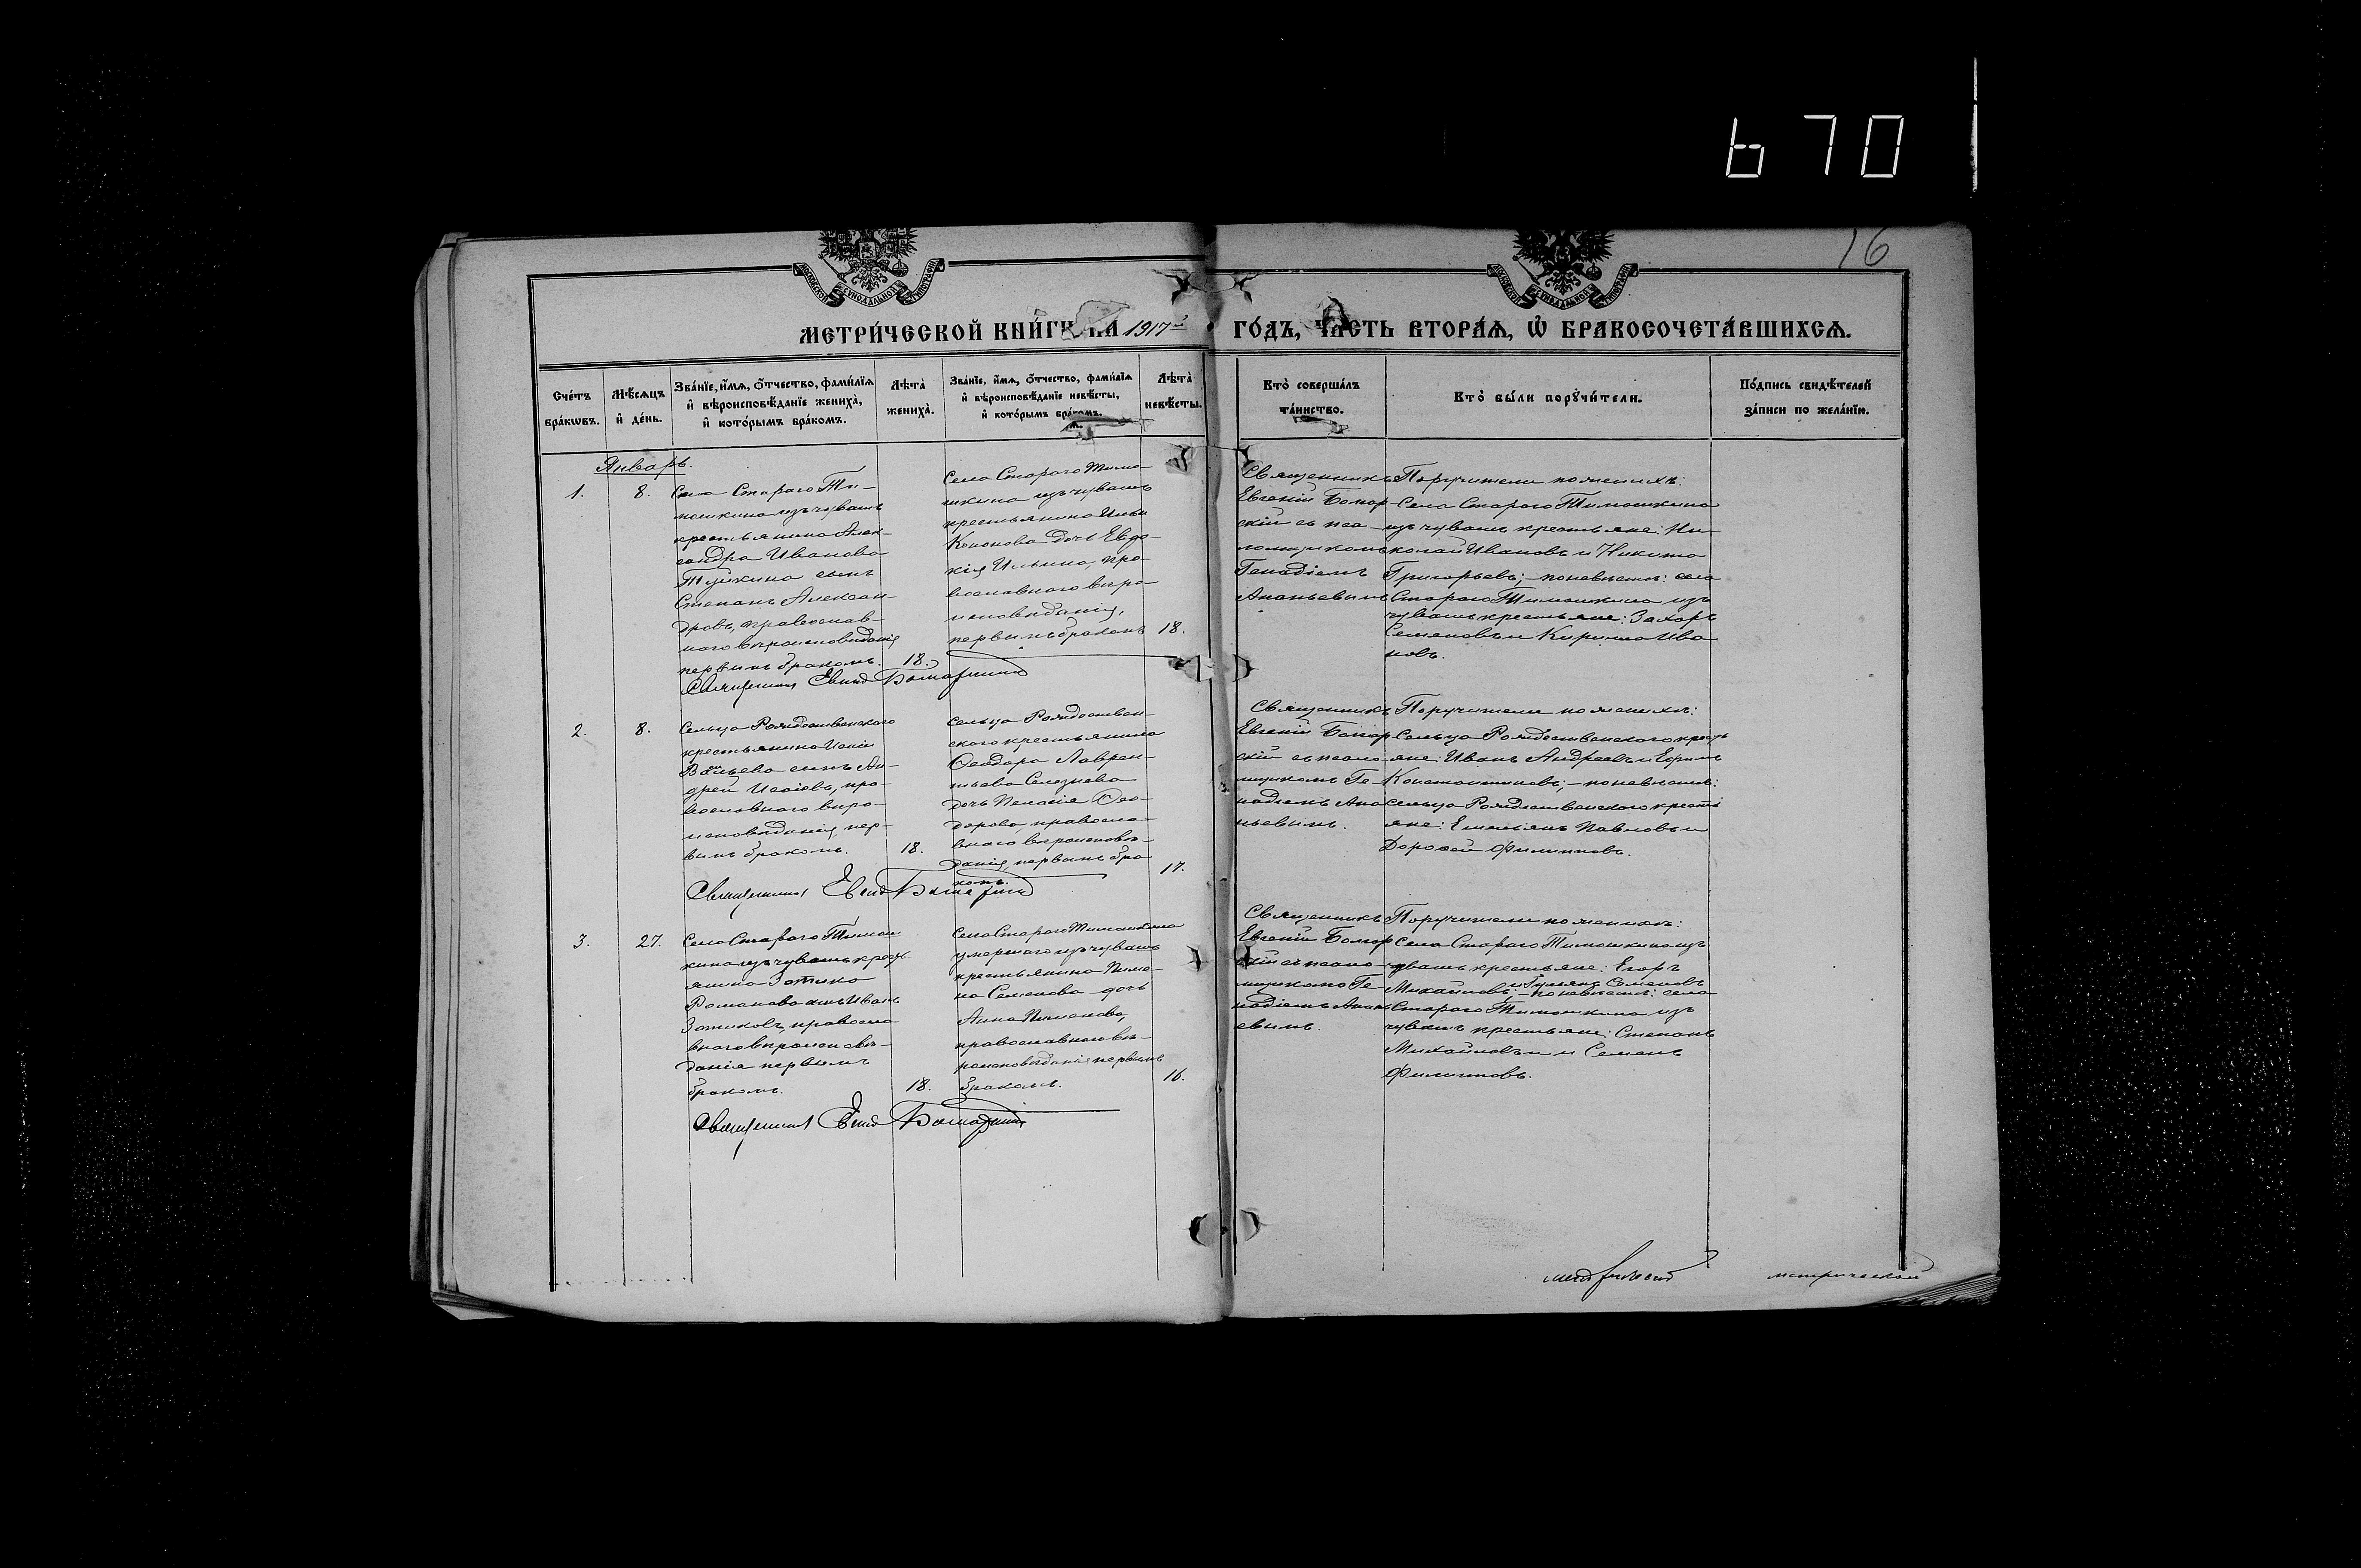 670
16
МОСКОВСКОЙ СѴНОДАЛЬНОЙ ТИПОГРАФІИ
МОСКОВСКОЙ СѴНОДАЛЬНОЙ ТИПОГРАФІИ
МЕТРИ́ЧЕСКОЙ КНИ́ГИ НА 1917 й ГО́ДЪ, ЧАСТЬ ВТОРА́Ѧ, Ѡ҆ БРАКОСОЧЕТА́ВШИХСѦ.
Сче́тъ бра́кѡвъ.
Мѣ́сѧцъ и҆ де́нь.
Зва́нїе, и҆́мѧ, ѻ҆́тчество, фами́лїѧ
и҆ вѣроисповѣ́данїе жениха̀,
и҆ кото́рымъ бра́комъ.
Лѣ́та̀ жениха̀.
Зва́нїе, и҆́мѧ, ѻ҆́тчество, фами́лїѧ
и҆ вѣроисповѣ́данїе невѣ́сты,
и҆ кото́рымъ бра́комъ.
Лѣ́та̀ невѣ́сты.
Кто̀ соверша́лъ
та́инство.
Кто̀ бы́ли порꙋчи́тели.
По́дпись свидѣ́телей
за́писи по жела́нїю.
Январь.
1.
8.
Села Стараго Ти-
мошкина изъ чувашъ
крестьянина Алек-
сандра Иванова
сынъ
Степанъ Алексан-
дровъ, православ-
наго вѣроисповѣданія
первымъ бракомъ.
18.
Села Стараго Тимо-
шкина изъ чувашъ
крестьянина Ильи
Кононова дочь Евдо-
кія Ильина, пра-
вославнаго вѣро-
исповѣданія,
первымъ бракомъ
18.
Священникъ
Евгеній
скій съ пса-
ломщикомъ
Генадіемъ
Ананьевымъ
Поручители по женихѣ:
Села Стараго Тимошкина
изъ чувашъ крестьяне: Ни-
колай Ивановъ и Никита
Григорьевъ; — по невѣстѣ: села
Стараго Тимошкина изъ
чувашъ крестьяне: Захаръ
Семеновъ и Кирилла Ива
новъ.
Священникъ
2.
8.
Сельца Рождественскаго
крестьянина Исаіи
сынъ Ан-
дрей Исаіевъ, пра-
вославнаго вѣро-
исповѣданія, пер-
вымъ бракомъ.
18.
Сельца Рождествен-
скаго крестьянина
Ѳеодора Лаврен-
тьева Селезнева
дочь Пелагія Ѳео-
дорова, правосла-
внаго вѣроисповѣ-
данія, первымъ бра
комъ.
17.
Священникъ
Евгеній
скій съ псало
мщикомъ Ге-
надіемъ Ана
ньевымъ.
Поручители по женихѣ:
Сельца Рождественскаго кресть
яне: Иванъ Андреевъ и Ефимъ
Константиновъ; — по невѣстѣ:
Сельца Рождественскаго кресть
яне: Емельянъ Павловъ и
Дороѳей Филипповъ.
Священникъ
3.
27.
Села Стараго Тимош
кина изъ чувашъ кресть
янина Зотика
Романова сынъ Иванъ
Зотиковъ, правосла
внаго вѣроисповѣ-
данія первымъ
бракомъ.
18.
Села Стараго Тимошкина
умершаго изъ чувашъ
крестьянина Пиме-
на Семенова дочь
Анна Пименова,
православнаго вѣ-
роисповѣданія первымъ
бракомъ.
16.
Священникъ
Евгеній
скій съ псало-
мщикомъ Ге-
надіемъ Анань
евымъ.
Поручители по женихѣ:
Села Стараго Тимошкина изъ
чувашъ крестьяне: Егоръ
Михайловъ и Семеновъ
по невѣстѣ: села
Стараго Тимошкина изъ
чувашъ крестьяне: Степанъ
Михайловъ и Семенъ
Филипповъ.
Священникъ
метрической